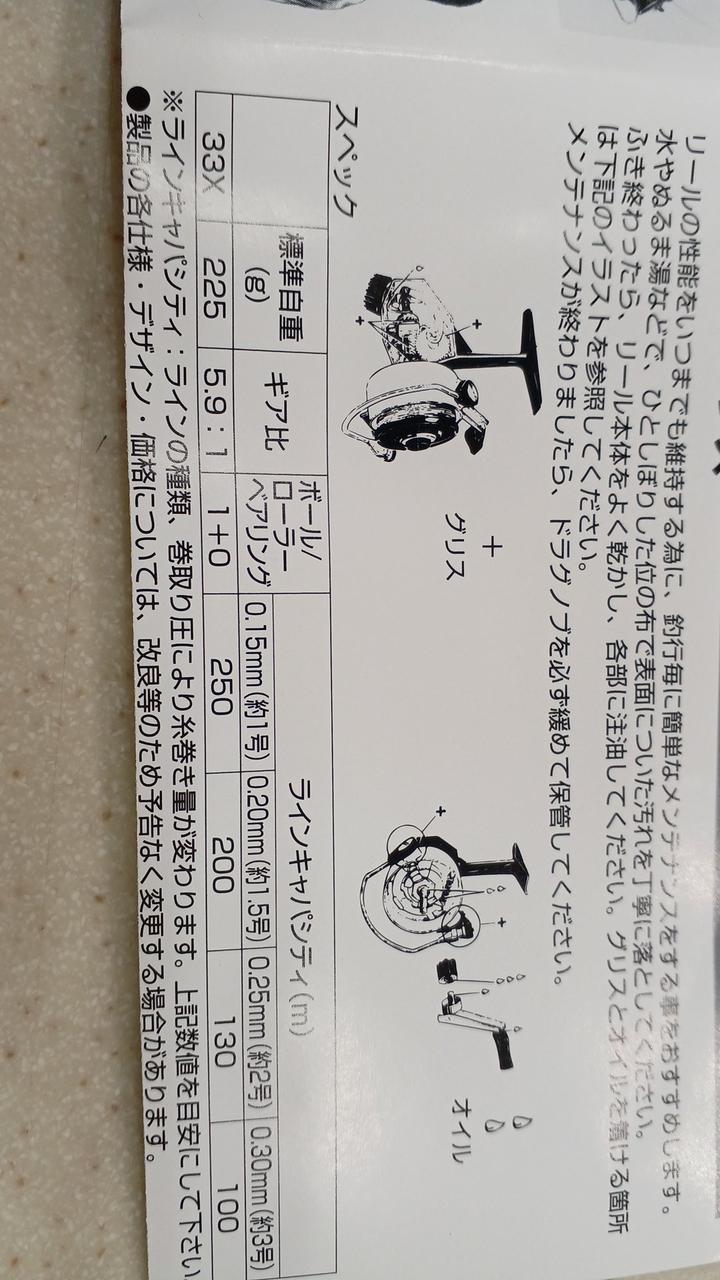 リールの性能をいつまでも維持する為に、釣行毎に簡単なメンテナンスをする事をおすすめします。
水やぬるま湯などで、ひとしぼりした位の布で表面についた汚れを丁寧に落としてください。
ふき終わったら、リール本体をよく乾かし、各部に注油してください。グリスとオイルを着ける箇所
は下記のイラストを参照してください。
メンテナンスが終わりましたら、ドラグノブを必ず緩めて保管してください。
+
グリス
オイル
スペック
標準自重(g) ギア比 ボール/ローラーベアリング ラインキャパシティ(m)
0.15mm(約1号) 0.20mm(約1.5号) 0.25mm(約2号) 0.30mm(約3号)
33X 225 5.9:1 1+0 250 200 130 100
※ラインキャパシティ:ラインの種類、巻取り圧により糸巻き量が変わります。上記数値を目安にして下さい
●製品の各仕様・デザイン・価格については、改良等のため予告なく変更する場合があります。